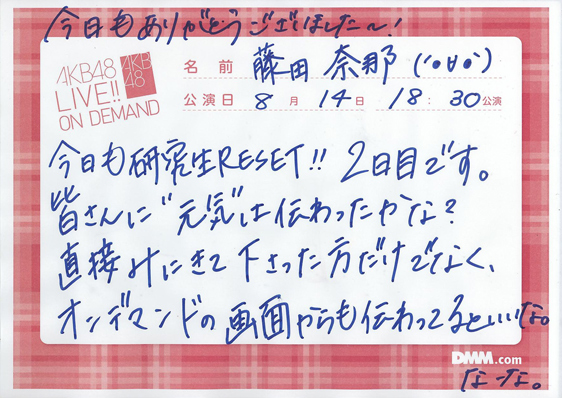 今日もありがとうございました〜!
AKB48
LIVE!!
ON DEMAND
AKB
48
名前 藤田 奈那 (´●∀●`)
公演日 8月14日 18:30公演
今日も研究生RESET!! 2日目です。
皆さんに"元気"は伝わったかな?
直接みにきて下さった方だけでなく、
オンデマンドの画面からも伝わってるといいな。
DMM.com
なーな。